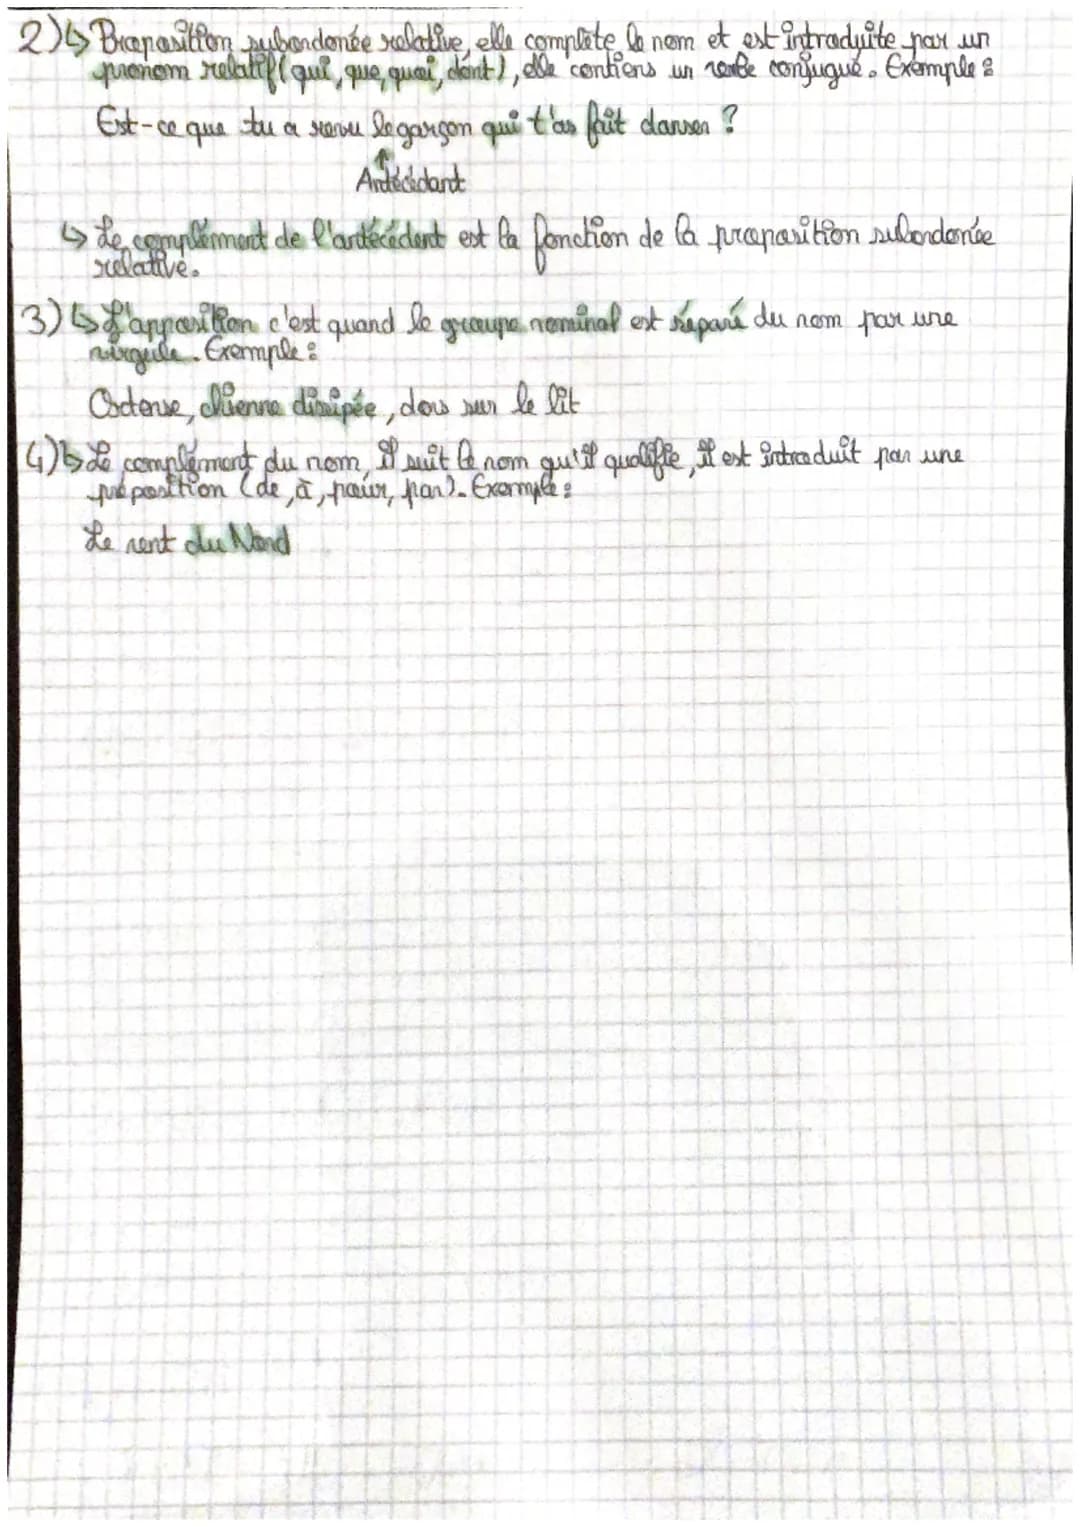 2)↳ Proposition subordonée relative, elle complète le nom et est introduite par un
pronom relatif (qui, que, quoi, dont), elle contiens un verbe conjugué. Exemple :
Est-ce que tu a revu le garçon qui t'as fait danser ?
↑
Antécédant
↳ Le complément de l'antécédent est la fonction de la proposition subordonée
relative.
3)↳ L'apposition c'est quand le groupe nominal est séparé du nom par une
virgule. Exemple :
chienne dissipée, dors sur le lit
4)↳ Le complément du nom, il suit le nom qu'il qualifie, il est introduit par une
préposition (de, à, pour, par). Exemple :
Le vent du Nord